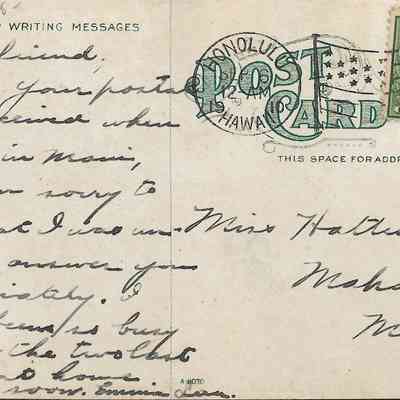 WRITING MESSAGES
friend,
your postal
ceived when
in Maui,
sorry to
I was un-
answer you
iately. I
been so busy
the two last
home
soon. Emma
HONOLULU
12 AM
19
HAWAII
POST
CARD
THIS SPACE FOR ADDR
Miss Hattie
Maha
M